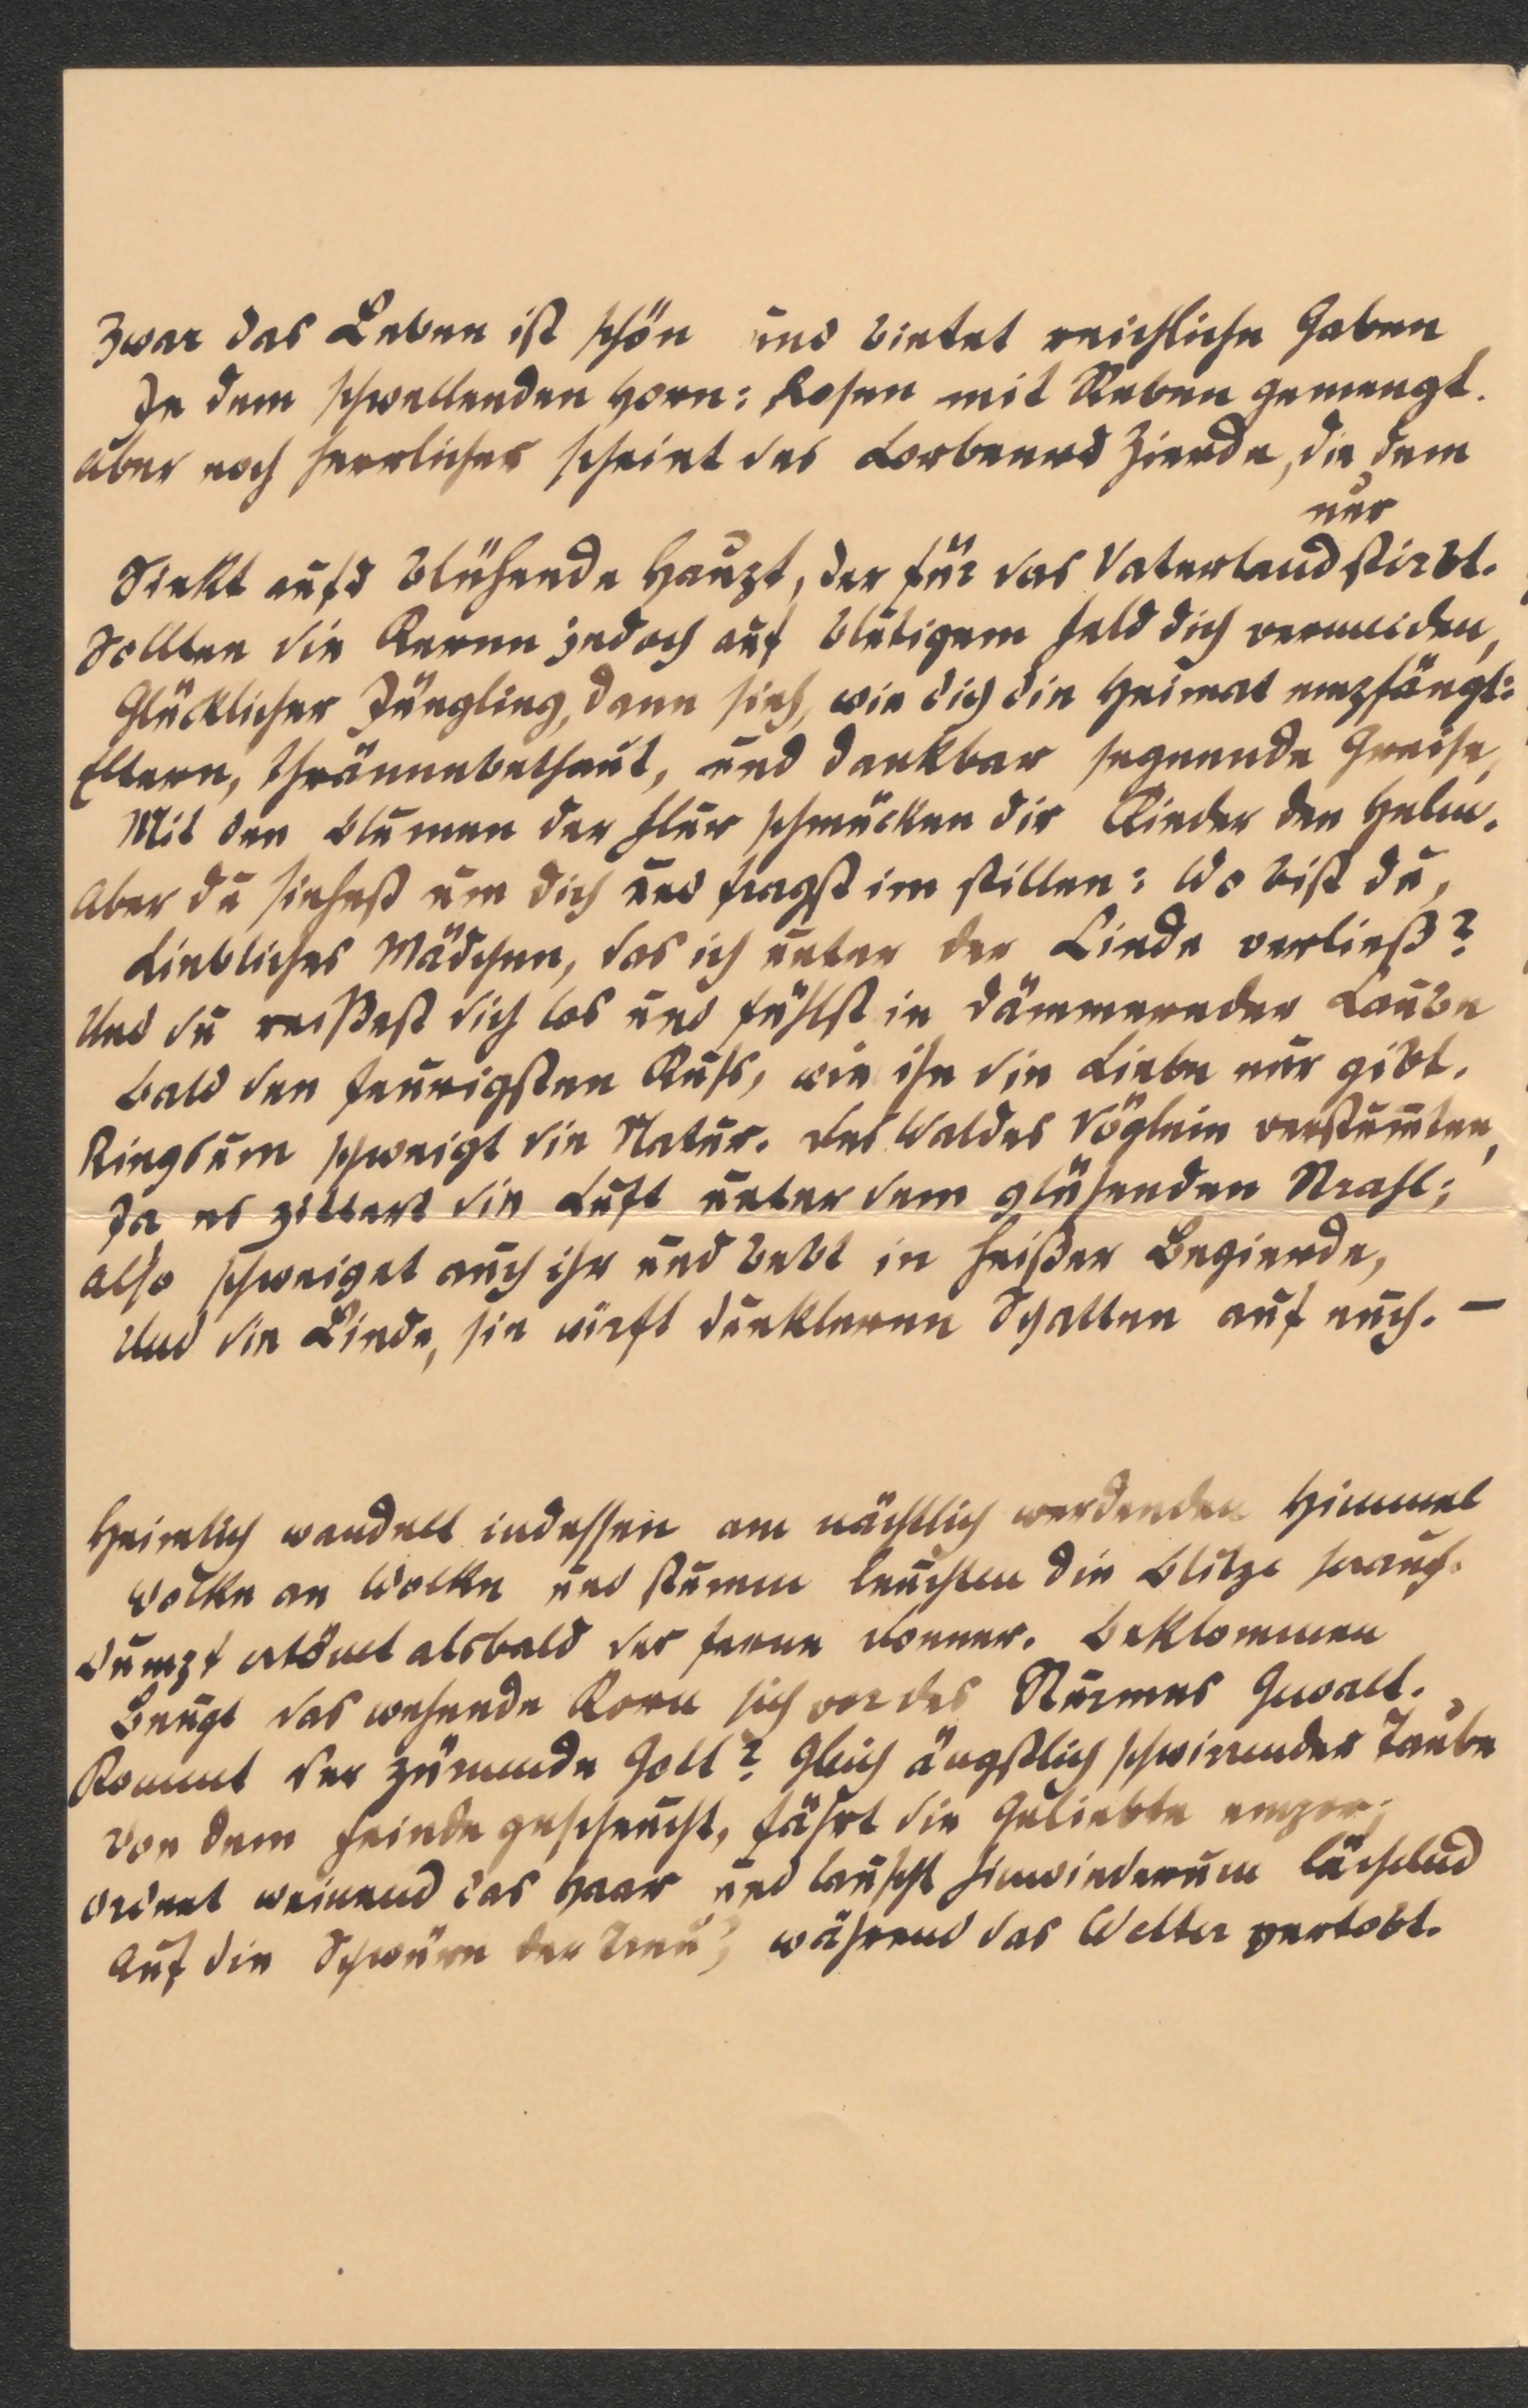 Zwar das Leben ist schön und bietet reichliche Gaben
In dem schwellenden Horn: Rosen mit Reben gemengt.
Aber noch herrlicher scheint des Lorbeers Zierde, die dem
nur
Sinkt aufs blühende Haupt, der für das Vaterland stirbt.
Sollten die Keren jedoch auf blutigem Feld dich vermeiden,
Glücklicher Jüngling, dann sieh, wie dich die Heimat empfängt:
Eltern, thränenbethaut, und dankbar segnende Greise,
Mit den Blumen der Flur schmücken dir Kinder den Helm.
Aber du siehest um dich und fragst im stillen: Wo bist du,
Liebliches Mädchen, das ich unter der Linde verließ?
Und du reißest dich los und fühlst in dämmernder Laube
Bald den feurigsten Kuss, wie ihn die Liebe nur gibt.
Ringsum schweigt die Natur. Des Waldes Vöglein verstumten,
Ja es zittert die Luft unter dem glühenden Strahl;
Also schweiget auch ihr und bebt in heißer Begierde,
Und die Linde, sie wirft dunkleren Schatten auf euch. –
Heimlich wandelt indessen am nächtlich werdenden Himmel
Wolke an Wolke und stumm leuchten die Blitze herauf.
Dumpf ertönet alsbald der ferne Donner. Beklommen
Beugt das wehende Korn sich vor des Sturmes Gewalt.
Kommt der zürnende Gott? Gleich ängstlich schwirrender Taube
Von dem Feinde gescheucht, fährt die Geliebte empor;
Ordnet weinend das Haar und lauscht hinwiederum lächelnd
Auf die Schwüre der Treu', während das Wetter vertobt.